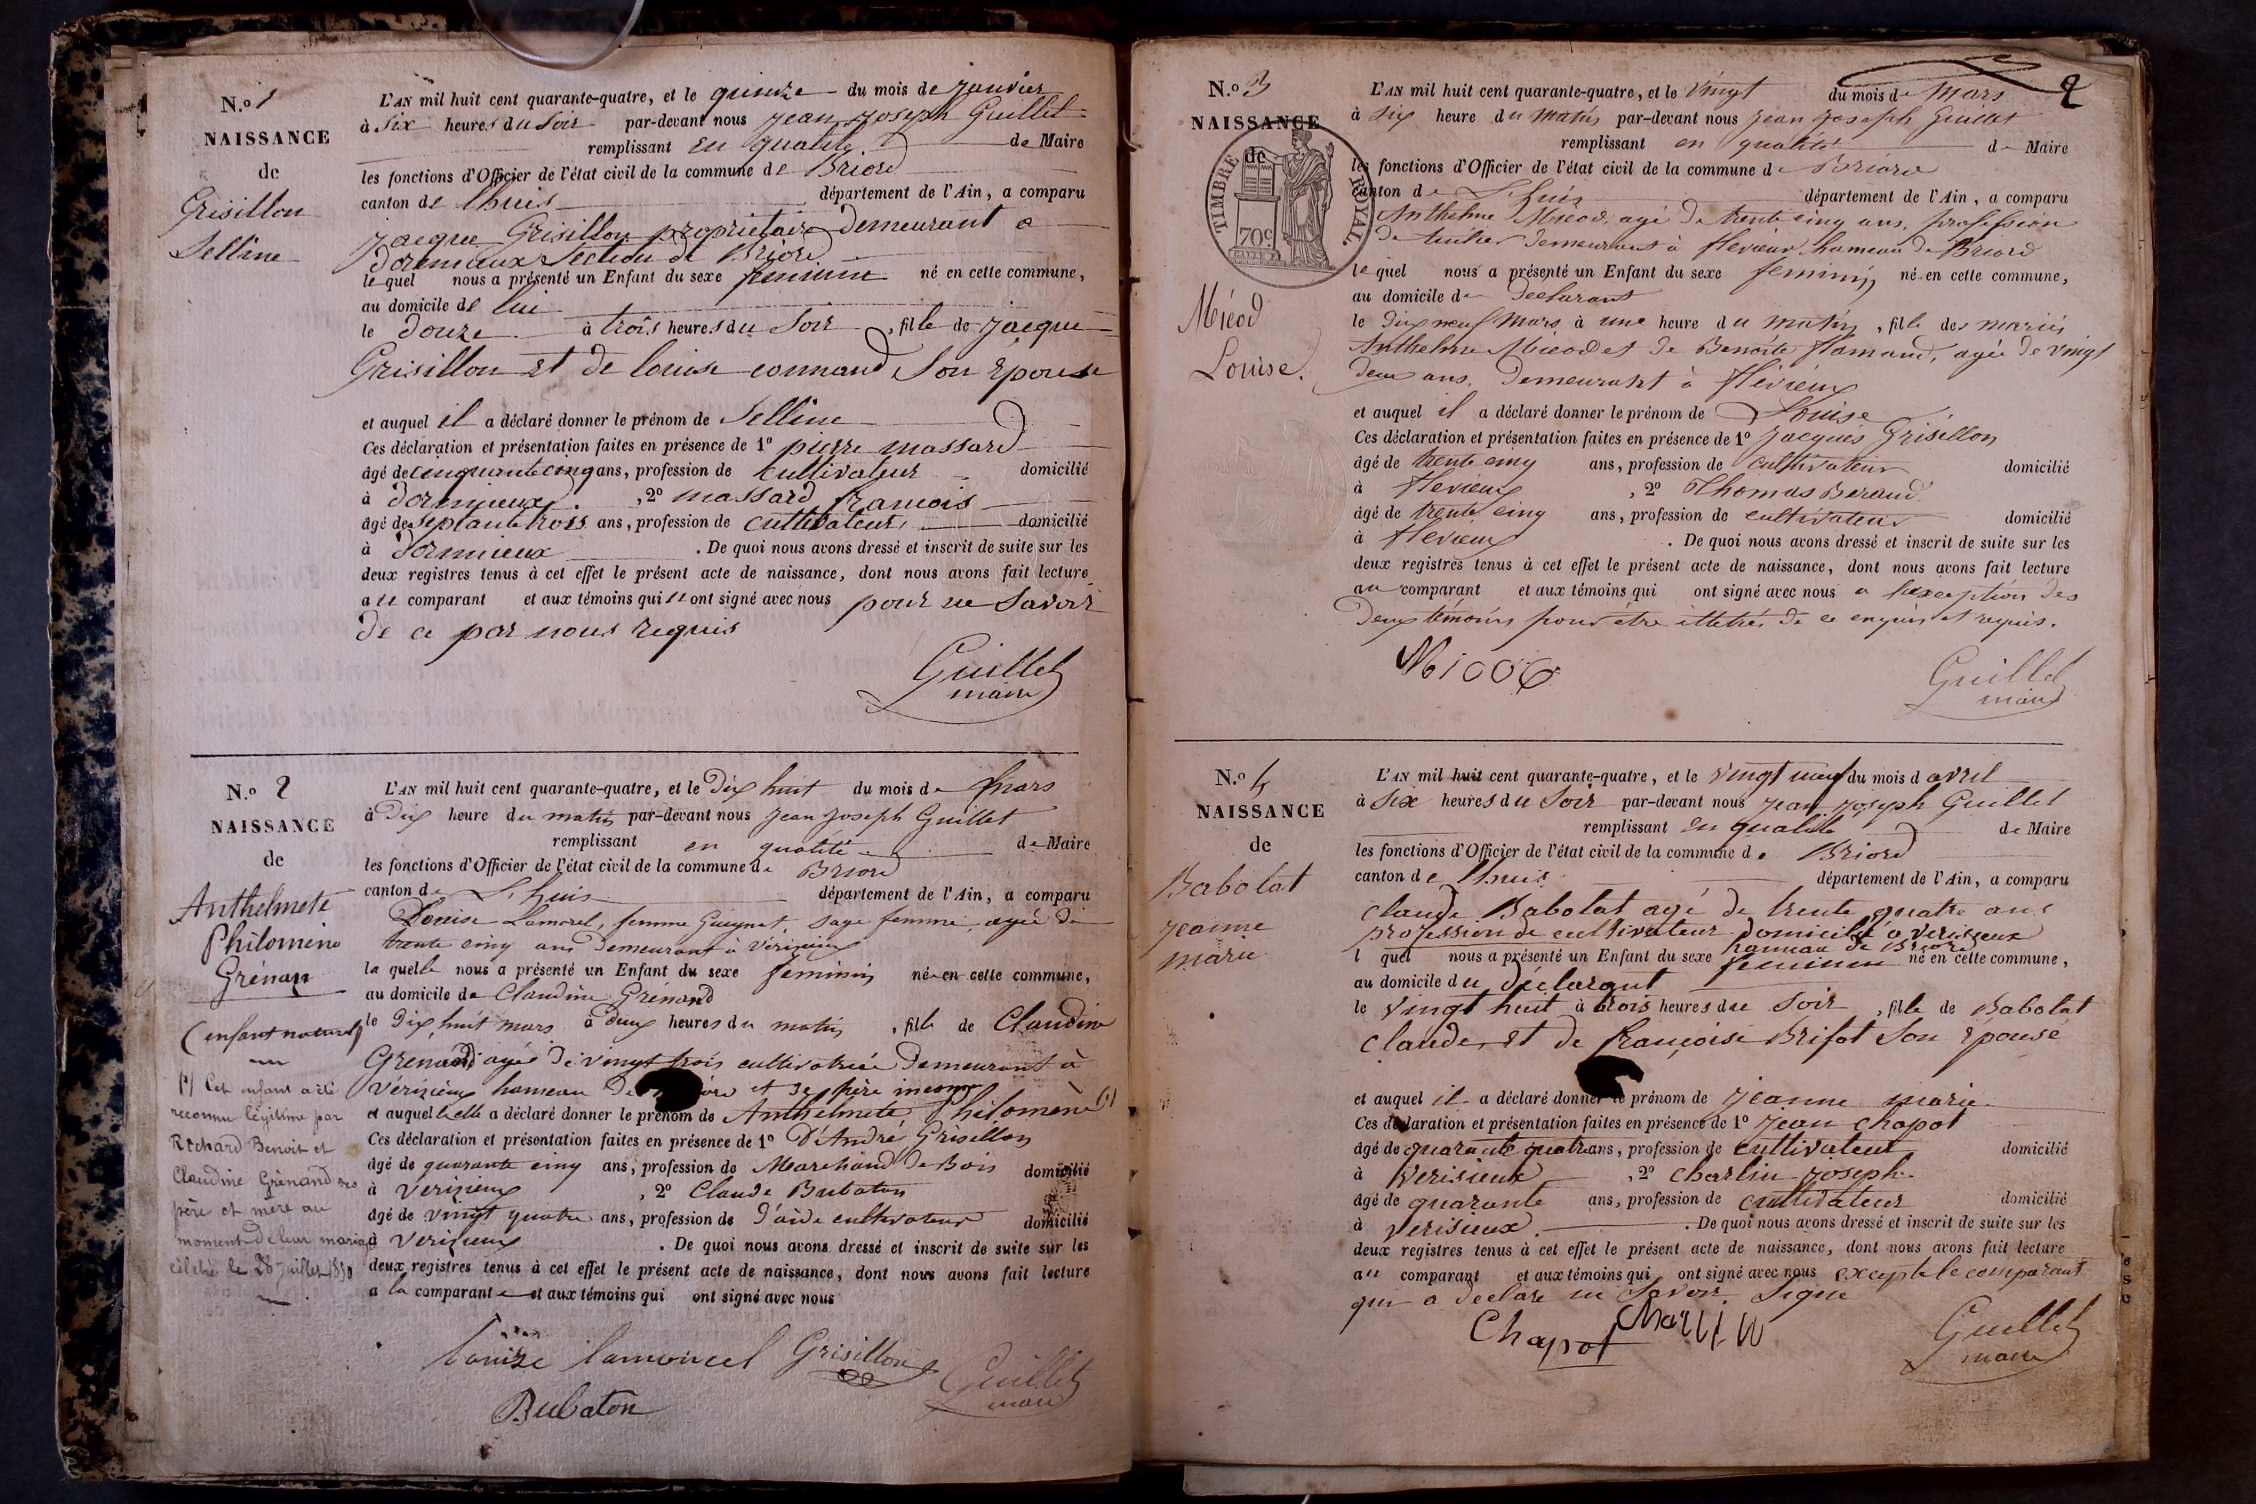 N.o 1
NAISSANCE
de
Grisillon
Selline
L'AN mil huit cent quarante-quatre, et le quinze du mois de Janvier
à Six heures du Soir par-devant nous Jean Joseph Guillet
remplissant en qualité de Maire
les fonctions d'Officier de l'état civil de la commune de Briord
canton de lhuis département de l'Ain, a comparu
Jacque Grisillon proprietaire demeurant a
dormieux Section de Briord
le quel nous a présenté un Enfant du sexe feminin né en cette commune,
au domicile de lui
le douze à trois heures du Soir, fille de Jacque
Grisillon et de louise connand Son Epouse
et auquel il a déclaré donner le prénom de Selline
Ces déclaration et présentation faites en présence de 1o pierre massard
âgé de cinquante cinq ans, profession de cultivateur domicilié
à dormieux, 2o massard francois
âgé de septante trois ans, profession de cultivateur, domicilié
à dormieux. De quoi nous avons dressé et inscrit de suite sur les
deux registres tenus à cet effet le présent acte de naissance, dont nous avons fait lecture
au comparant et aux témoins qui n ont signé avec nous pour ne Savoir
de ce par nous requis
Guillet
maire
N.o 2
NAISSANCE
de
Anthelmete
Philomine
Grénan
(enfant naturel)
(1) Cet enfant a été
reconnu légitime par
Richard Benoit et
Claudine Grénand ses
père et mère au
moment de leur mariage
célébré le 28 juillet 1850
L'AN mil huit cent quarante-quatre, et le Dix huit du mois de Mars
à Dix heure du matin par-devant nous Jean Joseph Guillet
remplissant en qualité de Maire
les fonctions d'Officier de l'état civil de la commune de Briord
canton de L'huis département de l'Ain, a comparu
Louise Lamorel, femme Gueynet, sage femme, agée de
trente cinq ans Demeurant à Vérizieux
la quelle nous a présenté un Enfant du sexe féminin né en cette commune,
au domicile de Claudine Grénand
le Dix huit mars à deux heures du matin, fille de Claudine
Grénand agée de vingt trois cultivatrice Demeurant à
Vérizieux hameau De et de père inconnu
et auquel elle a déclaré donner le prénom de Anthelmete Philomène (1)
Ces déclaration et présentation faites en présence de 1o D'André Grisillon
âgé de quarante cinq ans, profession de Marchand De Bois domicilié
à Verizieux, 2o Claude Bubaton
âgé de vingt quatre ans, profession de D'aide cultivateur domicilié
à Verizieux. De quoi nous avons dressé et inscrit de suite sur les
deux registres tenus à cet effet le présent acte de naissance, dont nous avons fait lecture
a la comparante et aux témoins qui ont signé avec nous
Louise lamourel Grisillon
Guillet
maire
Bubaton
2
N.o 3
NAISSANCE
de
TIMBRE ROYAL
70c
Miéod
Louise.
L'AN mil huit cent quarante-quatre, et le Vingt du mois de Mars
à six heure du matin par-devant nous Jean Joseph Guillet
remplissant en qualité de Maire
les fonctions d'Officier de l'état civil de la commune de Briord
canton de L'huis département de l'Ain, a comparu
Anthelme Miéod, agé de trente cinq ans, profession
De demeurant à flevieux hameau de Briord
le quel nous a présenté un Enfant du sexe feminin né en cette commune,
au domicile de Declarant
le Dix neuf Mars à une heure du matin, fille des mariés
Anthelme Miéod et de Benoite flamand, agée de vingt
deux ans, Demeurant à flévieux
et auquel il a déclaré donner le prénom de Louise
Ces déclaration et présentation faites en présence de 1o Jacques Grisillon
âgé de trente cinq ans, profession de cultivateur domicilié
à flevieux, 2o Thomas Beraud
âgé de trente cinq ans, profession de cultivateur domicilié
à flevieux. De quoi nous avons dressé et inscrit de suite sur les
deux registres tenus à cet effet le présent acte de naissance, dont nous avons fait lecture
au comparant et aux témoins qui ont signé avec nous a l'exception des
Deux témoins pour être illetrés de ce enquis et requis.
Guillet
maire
N.o 4
NAISSANCE
de
Babolat
jeanne
marie
L'AN mil huit cent quarante-quatre, et le vingt neuf du mois d avril
à Six heures du Soir par-devant nous Jean Joseph Guillet
remplissant en qualité de Maire
les fonctions d'Officier de l'état civil de la commune de Briord
canton de lhuis département de l'Ain, a comparu
Claude Babolat agé de trente quatre ans
profession de cultivateur domicilié a verisieux
hameau de Briord
l quel nous a présenté un Enfant du sexe feminin né en cette commune,
au domicile du déclarant
le vingt huit à trois heures du Soir, fille de Babolat
claude, et de françoise Brifot Son Epouse
et auquel il a déclaré donner le prénom de jeanne marie
Ces déclaration et présentation faites en présence de 1o Jean chapot
âgé de quarante quatre ans, profession de cultivateur domicilié
à Verisieux, 2o charlin Joseph
âgé de quarante ans, profession de cultivateur domicilié
à verisieux. De quoi nous avons dressé et inscrit de suite sur les
deux registres tenus à cet effet le présent acte de naissance, dont nous avons fait lecture
au comparant et aux témoins qui ont signé avec nous excepté le comparant
qui a declare ne Savoir Signe
Chapot
Guillet
maire